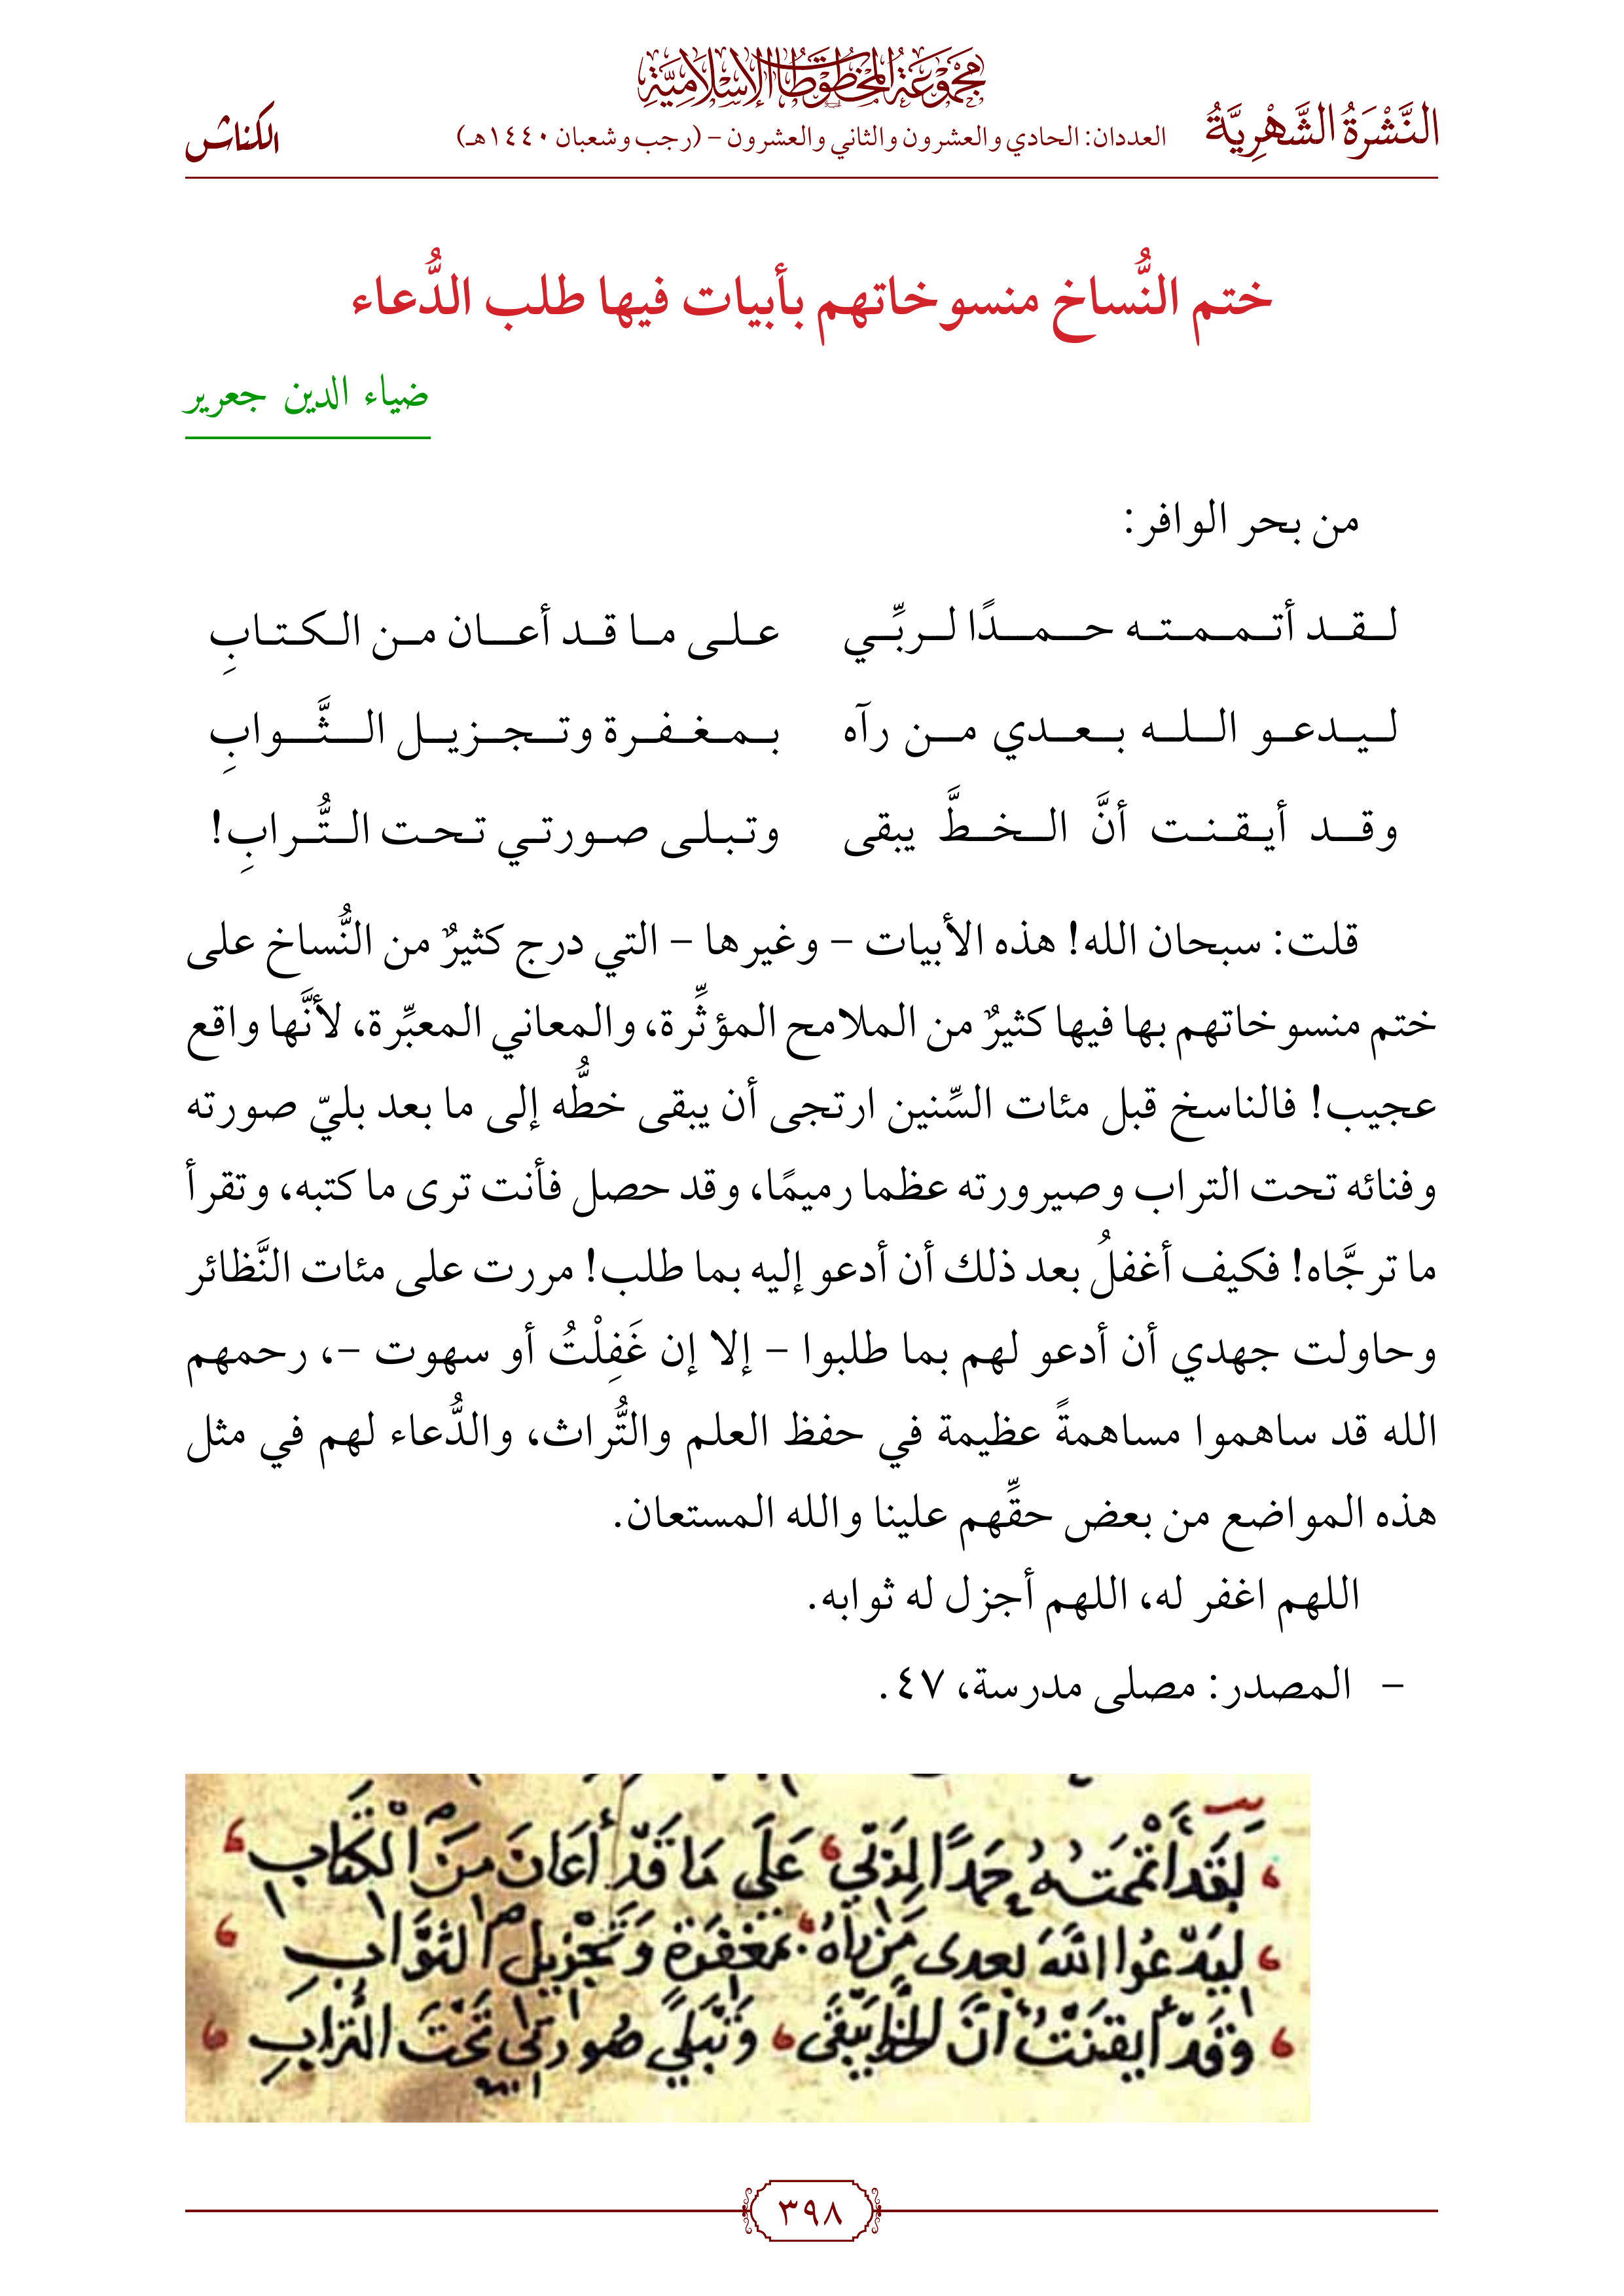 مَجْمُوعَةُ المَخْطُوطَاتِ الإِسْلَامِيَّة
النَّشْرَةُ الشَّهْرِيَّةُ
العددان: الحادي والعشرون والثاني والعشرون – (رجب وشعبان ١٤٤٠هـ)
الكناش
ختم النُّساخ منسوخاتهم بأبيات فيها طلب الدُّعاء
ضياء الدين جعرير
من بحر الوافر:
لقد أتممته حمدًا لربِّي على ما قد أعان من الكتابِ
ليدعو الله بعدي من رآه بمغفرة وتجزيل الثَّوابِ
وقد أيقنت أنَّ الخطَّ يبقى وتبلى صورتي تحت التُّرابِ!
قلت: سبحان الله! هذه الأبيات – وغيرها – التي درج كثيرٌ من النُّساخ على
ختم منسوخاتهم بها فيها كثيرٌ من الملامح المؤثِّرة، والمعاني المعبِّرة، لأنَّها واقع
عجيب! فالناسخ قبل مئات السِّنين ارتجى أن يبقى خطُّه إلى ما بعد بليّ صورته
وفنائه تحت التراب وصيرورته عظما رميمًا، وقد حصل فأنت ترى ما كتبه، وتقرأ
ما ترجَّاه! فكيف أغفلُ بعد ذلك أن أدعو إليه بما طلب! مررت على مئات النَّظائر
وحاولت جهدي أن أدعو لهم بما طلبوا – إلا إن غَفِلْتُ أو سهوت –، رحمهم
الله قد ساهموا مساهمةً عظيمة في حفظ العلم والتُّراث، والدُّعاء لهم في مثل
هذه المواضع من بعض حقِّهم علينا والله المستعان.
اللهم اغفر له، اللهم أجزل له ثوابه.
– المصدر: مصلى مدرسة، ٤٧.
لَقَدْ أَتْمَمْتُهُ حَمْدًا لِرَبِّي عَلَى مَا قَدْ أَعَانَ مِنَ الْكِتَابِ
لِيَدْعُوا اللهَ بَعدى مَنْ رَآهُ بمَغْفِرَةٍ وَتَجْزِيلِ الثَّوَابِ
وَقَدْ أَيقَنْتُ أَنَّ الخَطَّ يَبْقَى وَتَبْلَى صُورَتِي تَحْتَ التُّرَابِ
٣٩٨